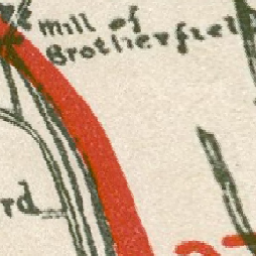 Mill of
Brotherfield
rd